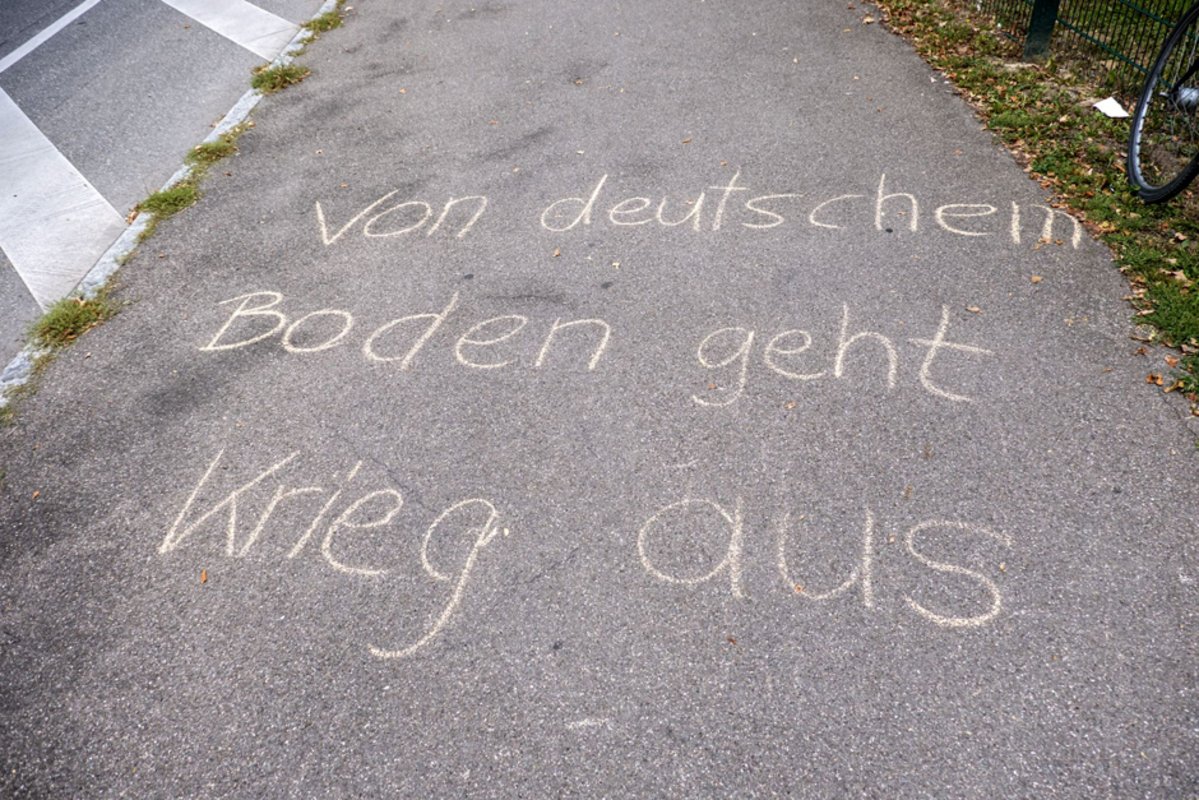 Von deutschem
Boden geht
Krieg aus